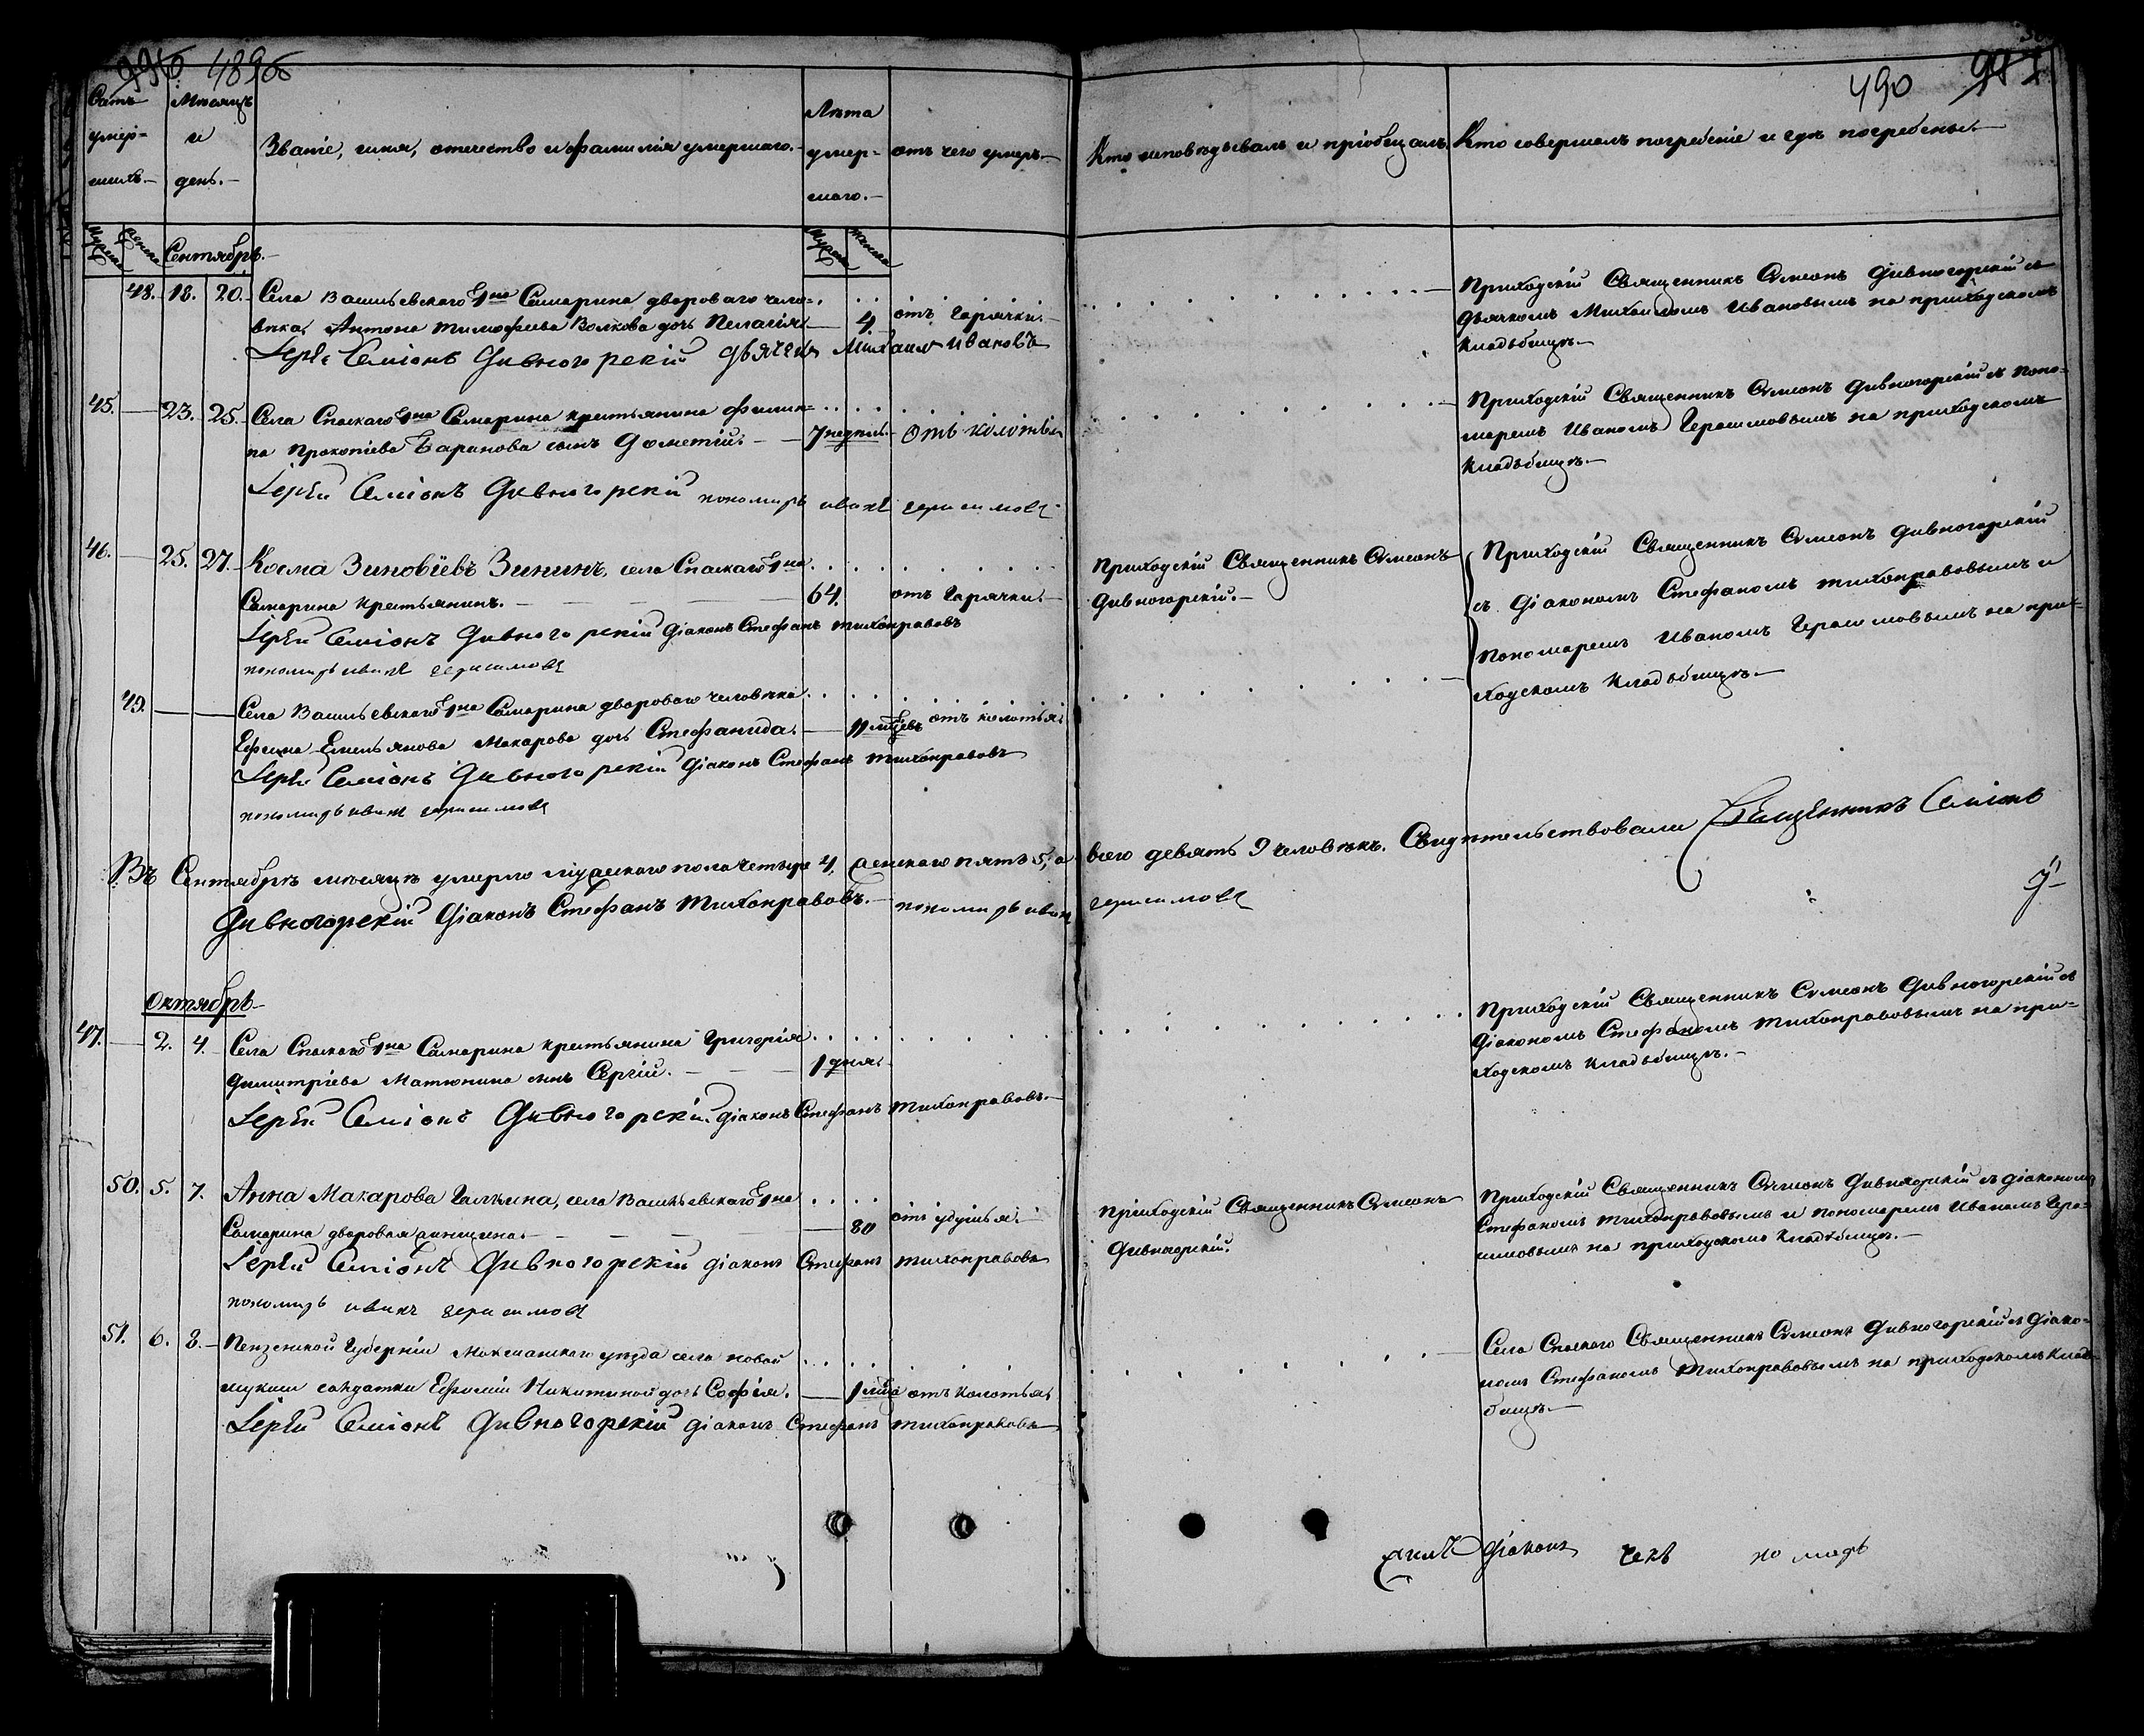 489об
490
Счетъ умершихъ.
Мѣсяцъ и день.
Званіе, имя, отечество и фамилія умершаго.
Лѣта умершаго.
отъ чего умеръ.
Кто исповѣдывалъ и пріобщалъ.
Кто совершалъ погребеніе и гдѣ погребены.
Сентябрь.
48. 18. 20. Села Васильевскаго Г-на Самарина двороваго чело-
вѣка, Антона Тимофеева Волкова дочь Пелагія 4. отъ горячки.
Іерей Симіонъ Дивногорскій дьячекъ Михаилъ Ивановъ
Приходскій Священникъ Симеонъ Дивногорскій съ
дьячкомъ Михаиломъ Ивановымъ на приходскомъ
кладбищѣ.
45. 23. 25. Села Спаскаго Г-на Самарина крестьянина Филип-
па Прокопіева Баранова сынъ Дометій. 7 недѣль. отъ колотья
Іерей Симіонъ Дивногорскій пономарь иванъ герасимовъ
Приходскій Священникъ Симеонъ Дивногорскій съ поно-
маремъ Иваномъ Герасимовымъ на приходскомъ
кладбищѣ.
46. 25. 27. Косма Зиновіевъ Зининъ, села Спаскаго Г-на
Самарина крестьянинъ. 64. отъ горячки.
Іерей Симіонъ Дивногорскій діаконъ Стефанъ Тихонравовъ
пономарь иванъ герасимовъ
Приходскій Священникъ Симеонъ
Дивногорскій.
Приходскій Священникъ Симеонъ Дивногорскій
съ діакономъ Стефаномъ Тихонравовымъ и
пономаремъ Иваномъ Герасимовымъ на при-
ходскомъ кладбищѣ.
49. Села Васильевскаго Г-на Самарина двороваго человѣка
Ефима Емельянова Макарова дочь Стефанида. 11 мѣсцевъ отъ колотья.
Іерей Симіонъ Дивногорскій діаконъ Стефанъ Тихонравовъ
пономарь иванъ герасимовъ
Въ Сентябрѣ мѣсяцѣ умерло мужескаго пола четыре 4, женскаго пять 5, а всего девять 9 человѣкъ. Свидѣтельствовали Священникъ Симіонъ
Дивногорскій Діаконъ Стефанъ Тихонравовъ. пономарь иванъ герасимовъ
Октябрь
47. 2. 4. Села Спаскаго Г-на Самарина крестьянина Григорія
Димитріева Матюнина сынъ Сергій. 1 дня.
Іерей Симіонъ Дивногорскій. діаконъ Стефанъ Тихонравовъ.
Приходскій Священникъ Симеонъ Дивногорскій съ
діакономъ Стефаномъ Тихонравовымъ на при-
ходскомъ кладбищѣ.
50. 5. 7. Анна Макарова Галкина, села Васильевскаго Г-на
Самарина дворовая женщина. 80 отъ удушья.
Іерей Симіонъ Дивногорскій діаконъ Стефанъ Тихонравовъ
пономарь иванъ герасимовъ
Приходскій Священникъ Симеонъ
Дивногорскій.
Приходскій Священникъ Симеонъ Дивногорскій съ діакономъ
Стефаномъ Тихонравовымъ и пономаремъ Иваномъ Гера-
симовымъ на приходскомъ кладбищѣ.
51. 6. 8. Пензенской Губерніи Мокшанскаго уѣзда села новой
солдатки Ефиміи Никитиной дочь Софія. 1 мца отъ колотья.
Іерей Симіонъ Дивногорскій діаконъ Стефанъ Тихонравовъ
Села Спаскаго Священникъ Симеонъ Дивногорскій съ діако-
номъ Стефаномъ Тихонравовымъ на приходскомъ клад-
бищѣ.
діаконъ